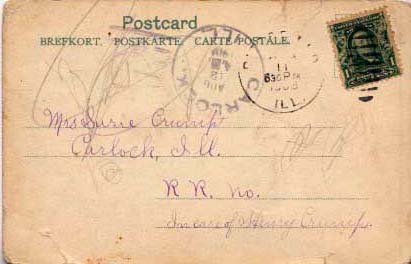 Postcard
BREFKORT. POSTKARTE. CARTE POSTALE.
CARLOCK
ILL
AUG
12
11
630 PM
ILL.
1
Mrs Susie Crump
Carlock, Ill.
R R. No.
In care of Henry Crump.